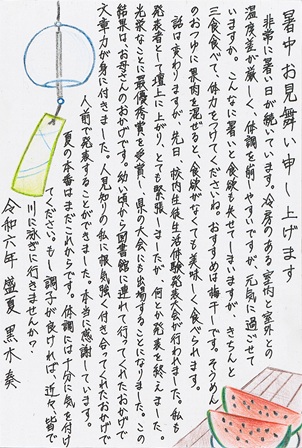 暑中お見舞い申し上げます
非常に暑い日が続いています。冷房のある室内と室外との
温度差が激しく、体調を崩しやすいですが、元気に過ごせて
いますか。こんなに暑いと食欲も失せてしまいますが、きちんと
三食食べて、体力をつけてくださいね。おすすめは梅干しです。そうめん
のおつゆに果肉を混ぜると、食欲がなくても美味しく食べられます。
話は変わりますが、先日、校内生徒生活体験発表大会が行われました。私も
発表者として壇上に上がり、とても緊張しましたが、何とか発表を終えました。
光栄なことに最優秀賞を受賞し、県の大会にも出場することになりました。この
結果はお母さんのおかげです。幼い頃から図書館に連れて行ってくれたおかげで
文章力が身に付きました。人見知りの私に根気強く付き合ってくれたおかげで
人前で発表することができました。本当に感謝しています。
夏の本番はまだこれからです。体調には十分に気を付け
てください。もし調子が良ければ、近々、皆で
川に泳ぎに行きませんか？
令和六年 盛夏 黒水 奏